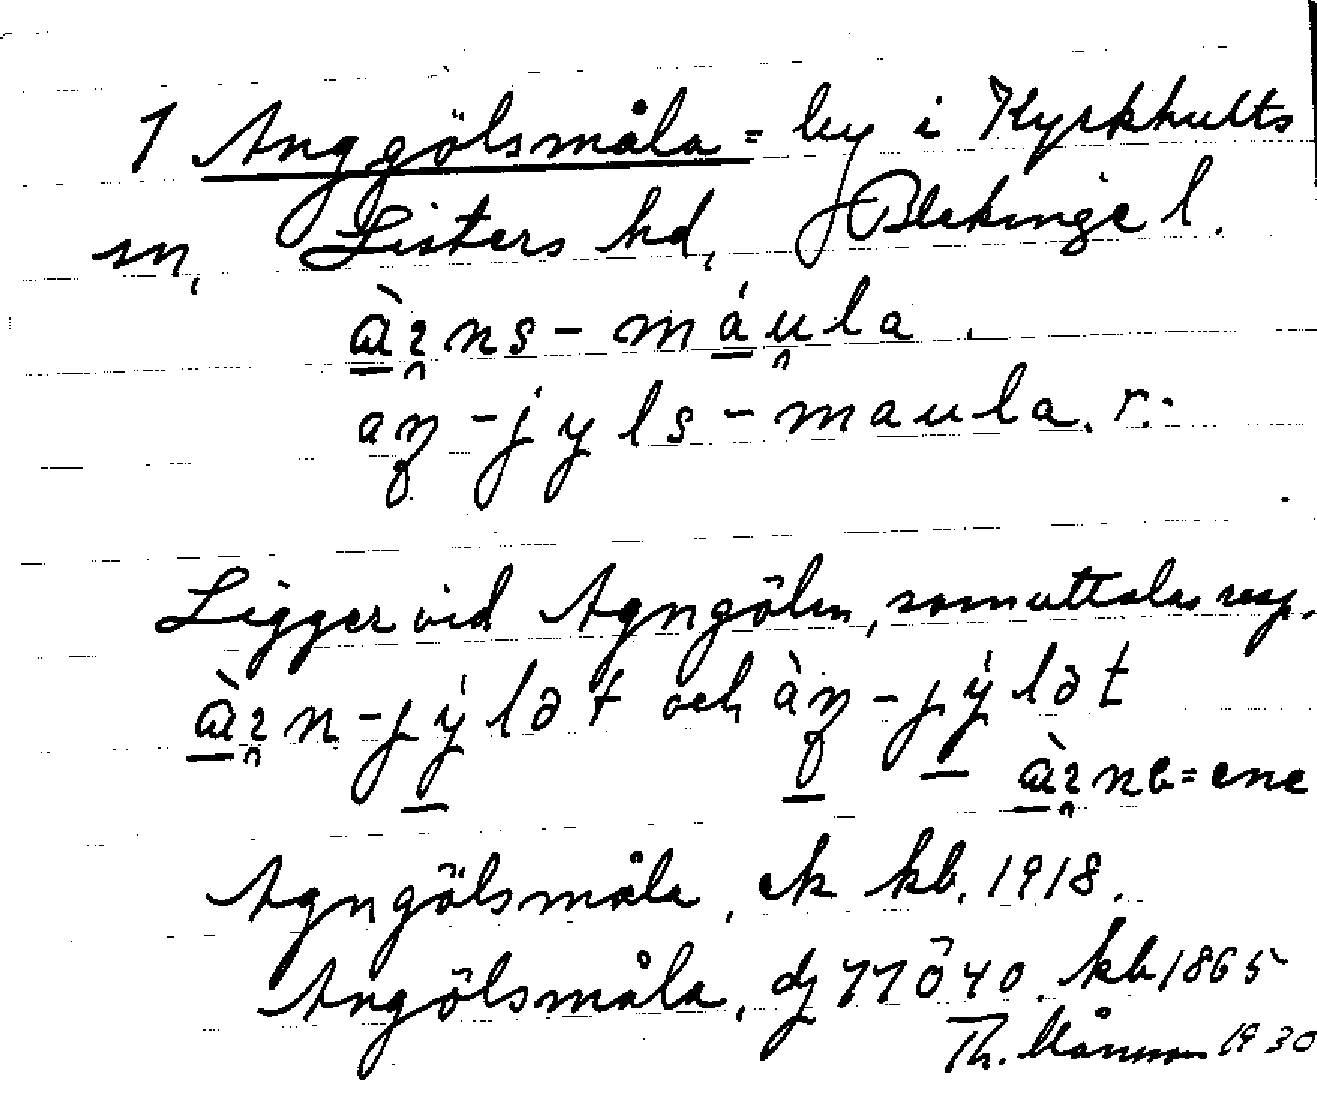 1 Anggölsmåla = by i Kyrkhults
sn, Listers hd, Blekinge l.
àɪ̯ns-máu̯la.
aŋ-jyls-maula. r.
Ligger vid Agngölen, som uttalas resp.
àɪ̯n-jýlət och àŋ-jýlət
àɪ̯nb = ene
Agngölsmåla, ek kb. 1918.
Angölsmåla, dj 77Ö40. kb 1865
Th. 1930